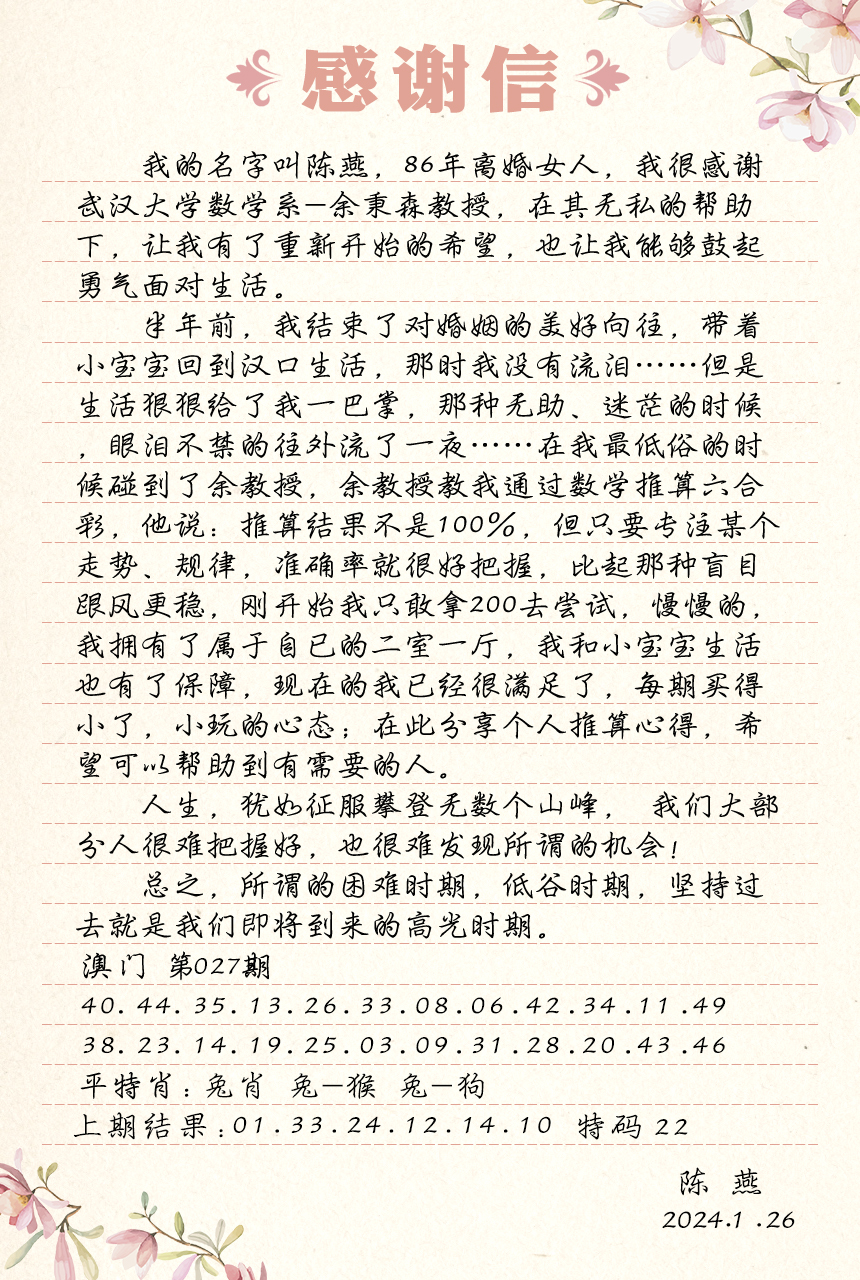 感谢信
我的名字叫陈燕，86年离婚女人，我很感谢
武汉大学数学系—余秉森教授，在其无私的帮助
下，让我有了重新开始的希望，也让我能够鼓起
勇气面对生活。
半年前，我结束了对婚姻的美好向往，带着
小宝宝回到汉口生活，那时我没有流泪……但是
生活狠狠给了我一巴掌，那种无助、迷茫的时候
，眼泪不禁的往外流了一夜……在我最低俗的时
候碰到了余教授，余教授教我通过数学推算六合
彩，他说：推算结果不是100%，但只要专注某个
走势、规律，准确率就很好把握，比起那种盲目
跟风更稳，刚开始我只敢拿200去尝试，慢慢的，
我拥有了属于自已的二室一厅，我和小宝宝生活
也有了保障，现在的我已经很满足了，每期买得
小了，小玩的心态；在此分享个人推算心得，希
望可以帮助到有需要的人。
人生，犹如征服攀登无数个山峰， 我们大部
分人很难把握好，也很难发现所谓的机会！
总之，所谓的困难时期，低谷时期，坚持过
去就是我们即将到来的高光时期。
澳门 第027期
40.44.35.13.26.33.08.06.42.34.11.49
38.23.14.19.25.03.09.31.28.20.43.46
平特肖：兔肖 兔—猴 兔—狗
上期结果：01.33.24.12.14.10 特码 22
陈 燕
2024.1.26